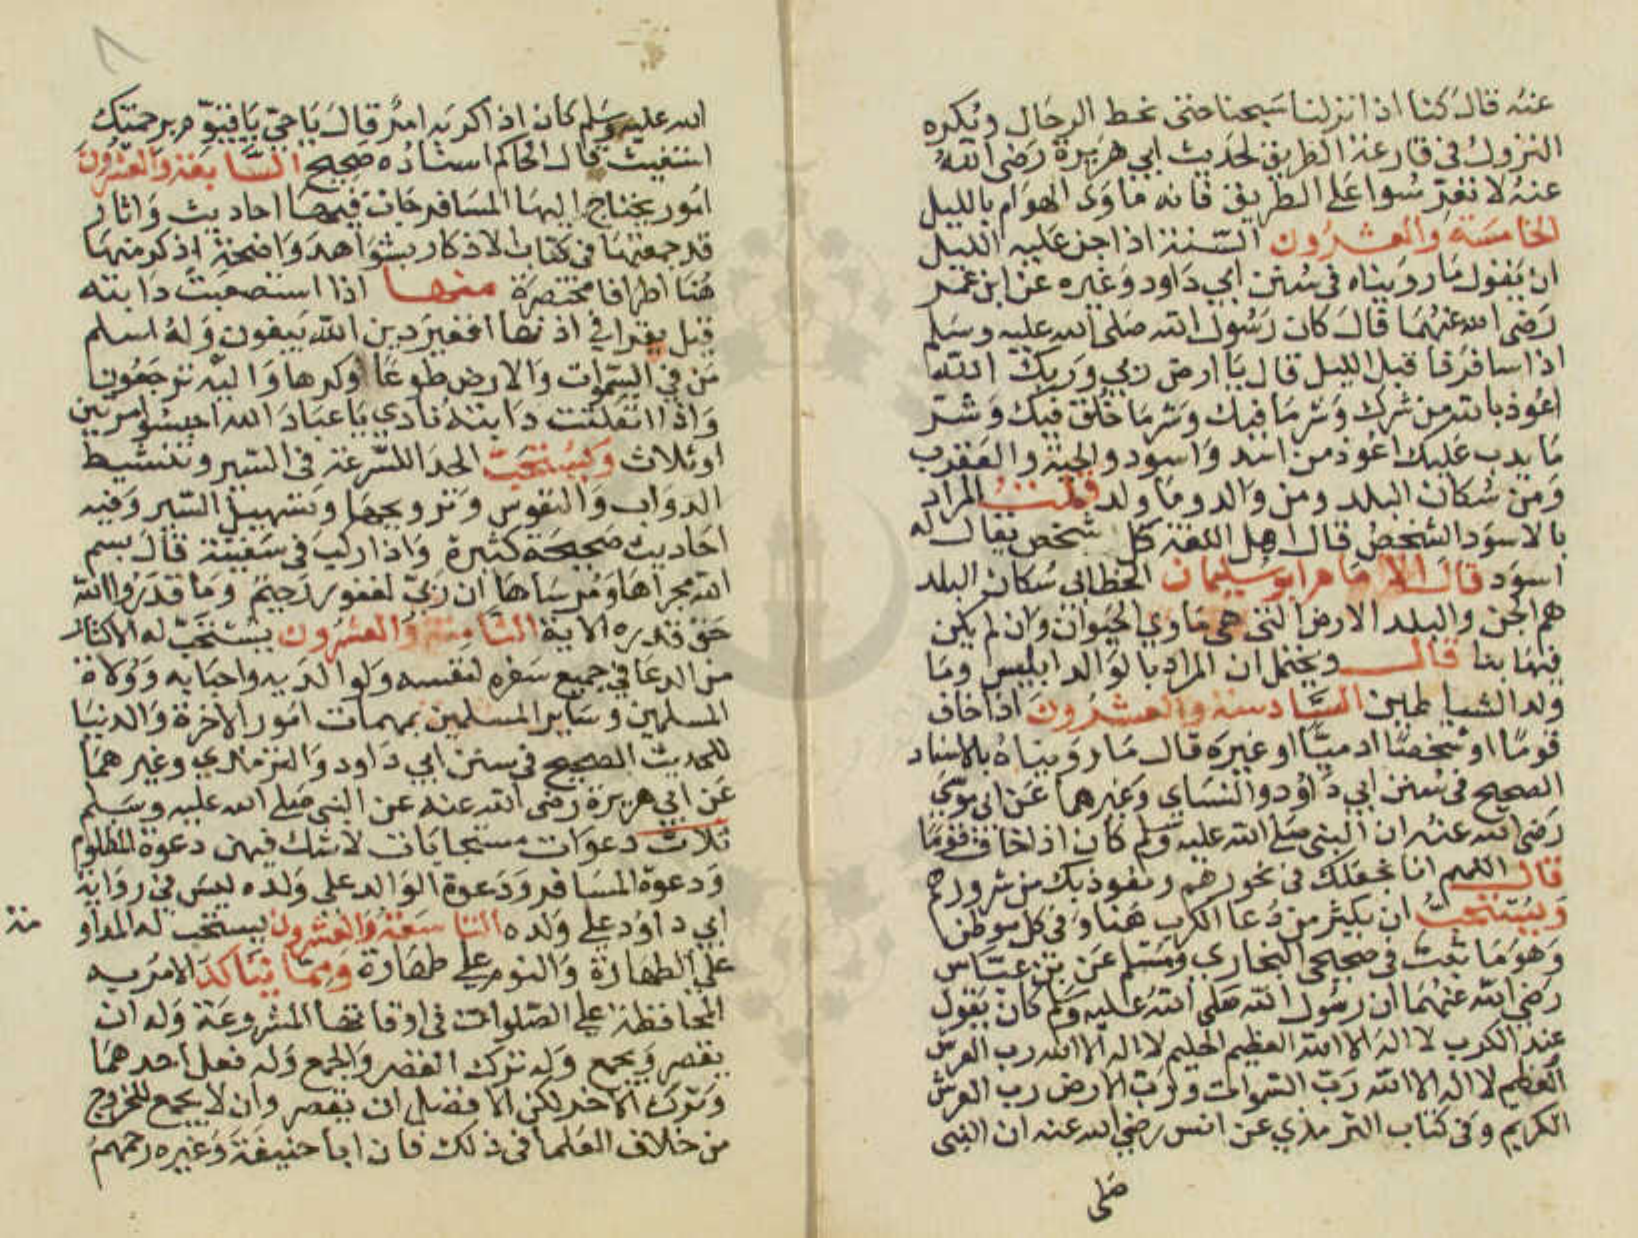 عنه قال كنا اذا نزلنا سبحنا حتى نحط الرحال ويكره
النزول في قارعة الطريق لحديث ابي هريرة رضي الله
عنه لا تعرسوا على الطريق فانه ماوى الهوام بالليل
الخامسة والعشرون السنة اذا جن عليه الليل
ان يقول ما رويناه في سنن ابي داود وغيره عن ابن عمر
رضي الله عنهما قال كان رسول الله صلى الله عليه وسلم
اذا سافر فاقبل الليل قال يا ارض ربي وربك الله
اعوذ بالله من شرك وشر ما فيك وشر ما خلق فيك وشر
ما يدب عليك اعوذ من اسد واسود والحية والعقرب
ومن سكان البلد ومن والد وما ولد قلت المراد
بالاسود الشخص قال اهل اللغة كل شخص يقال له
اسود قال الامام ابو سليمان الخطابي سكان البلد
هم الجن والبلد الارض التي هي ماوي الحيوان وان لم يكن
فيها بنا قال ويحتمل ان المراد بالوالد ابليس وما
ولد الشياطين السادسة والعشرون اذا خاف
قوما او شخصا ادميا او غيره قال ما رويناه بالاسناد
الصحيح في سنن ابي داود والنساي وغيرهما عن ابي موسي
رضي الله عنه ان النبي صلى الله عليه وسلم كان اذا خاف قوما
قال اللهم انا نجعلك في نحورهم ونعوذ بك من شرورهم
ويستحب ان يكثر من دعا الكرب هنا وفي كل موطن
وهو ما ثبت في صحيحي البخاري ومسلم عن بن عباس
رضي الله عنهما ان رسول الله صلى الله عليه وسلم كان يقول
عند الكرب لا اله الا الله العظيم الحليم لا اله الا الله رب العرش
العظيم لا اله الا الله رب السموات ورب الارض رب العرش
الكريم وفي كتاب الترمذي عن انس رضي الله عنه ان النبي
صلى
٨
الله عليه وسلم كان اذا كربه امر قال يا حي يا قيوم برحمتك
استغيث قال الحاكم اسناده صحيح السابعة والعشرون
امور يحتاج اليها المسافر جات فيها احاديث واثار
قد جمعتها في كتاب الاذكار بشواهد واضحة اذكر منها
هنا اطرافا مختصرة منها اذا استصعبت دابته
قيل يقرا في اذنها افغير دين الله يبغون وله اسلم
من في السموات والارض طوعا وكرها واليه ترجعون
واذا انفلتت دابته نادي يا عباد الله احبسوا مرتين
او ثلاث ويستحب الحدا للسرعة في السير وتنشيط
الدواب والنفوس وترويحها وتسهيل السير وفيه
احاديث صحيحة كثيرة واذا ركب في سفينة قال بسم
الله مجراها ومرساها ان ربي لغفور رحيم وما قدروا الله
حق قدره الاية الثامنة والعشرون يستحب له الاكثار
من الدعا في جميع سفره لنفسه ولوالديه واحبابه وولاة
المسلمين وساير المسلمين بمهمات امور الاخرة والدنيا
للحديث الصحيح في سنن ابي داود والترمذي وغيرهما
عن ابي هريرة رضي الله عنه عن النبي صلى الله عليه وسلم
ثلاث دعوات مستجابات لا شك فيهن دعوة المظلوم
ودعوة المسافر ودعوة الوالد على ولده ليس في رواية
ابي داود علي ولده التاسعة والعشرون يستحب له المداو
مة
علي الطهارة والنوم علي طهارة ومما يتاكد الامر به
المحافظة علي الصلوات في اوقاتها المشروعة وله ان
يقصر ويجمع وله ترك القصر والجمع وله فعل احدهما
وترك الاخر لكن الافضل ان يقصر وان لا يجمع للخروج
من خلاف العلما في ذلك فان ابا حنيفة وغيره رحمهم